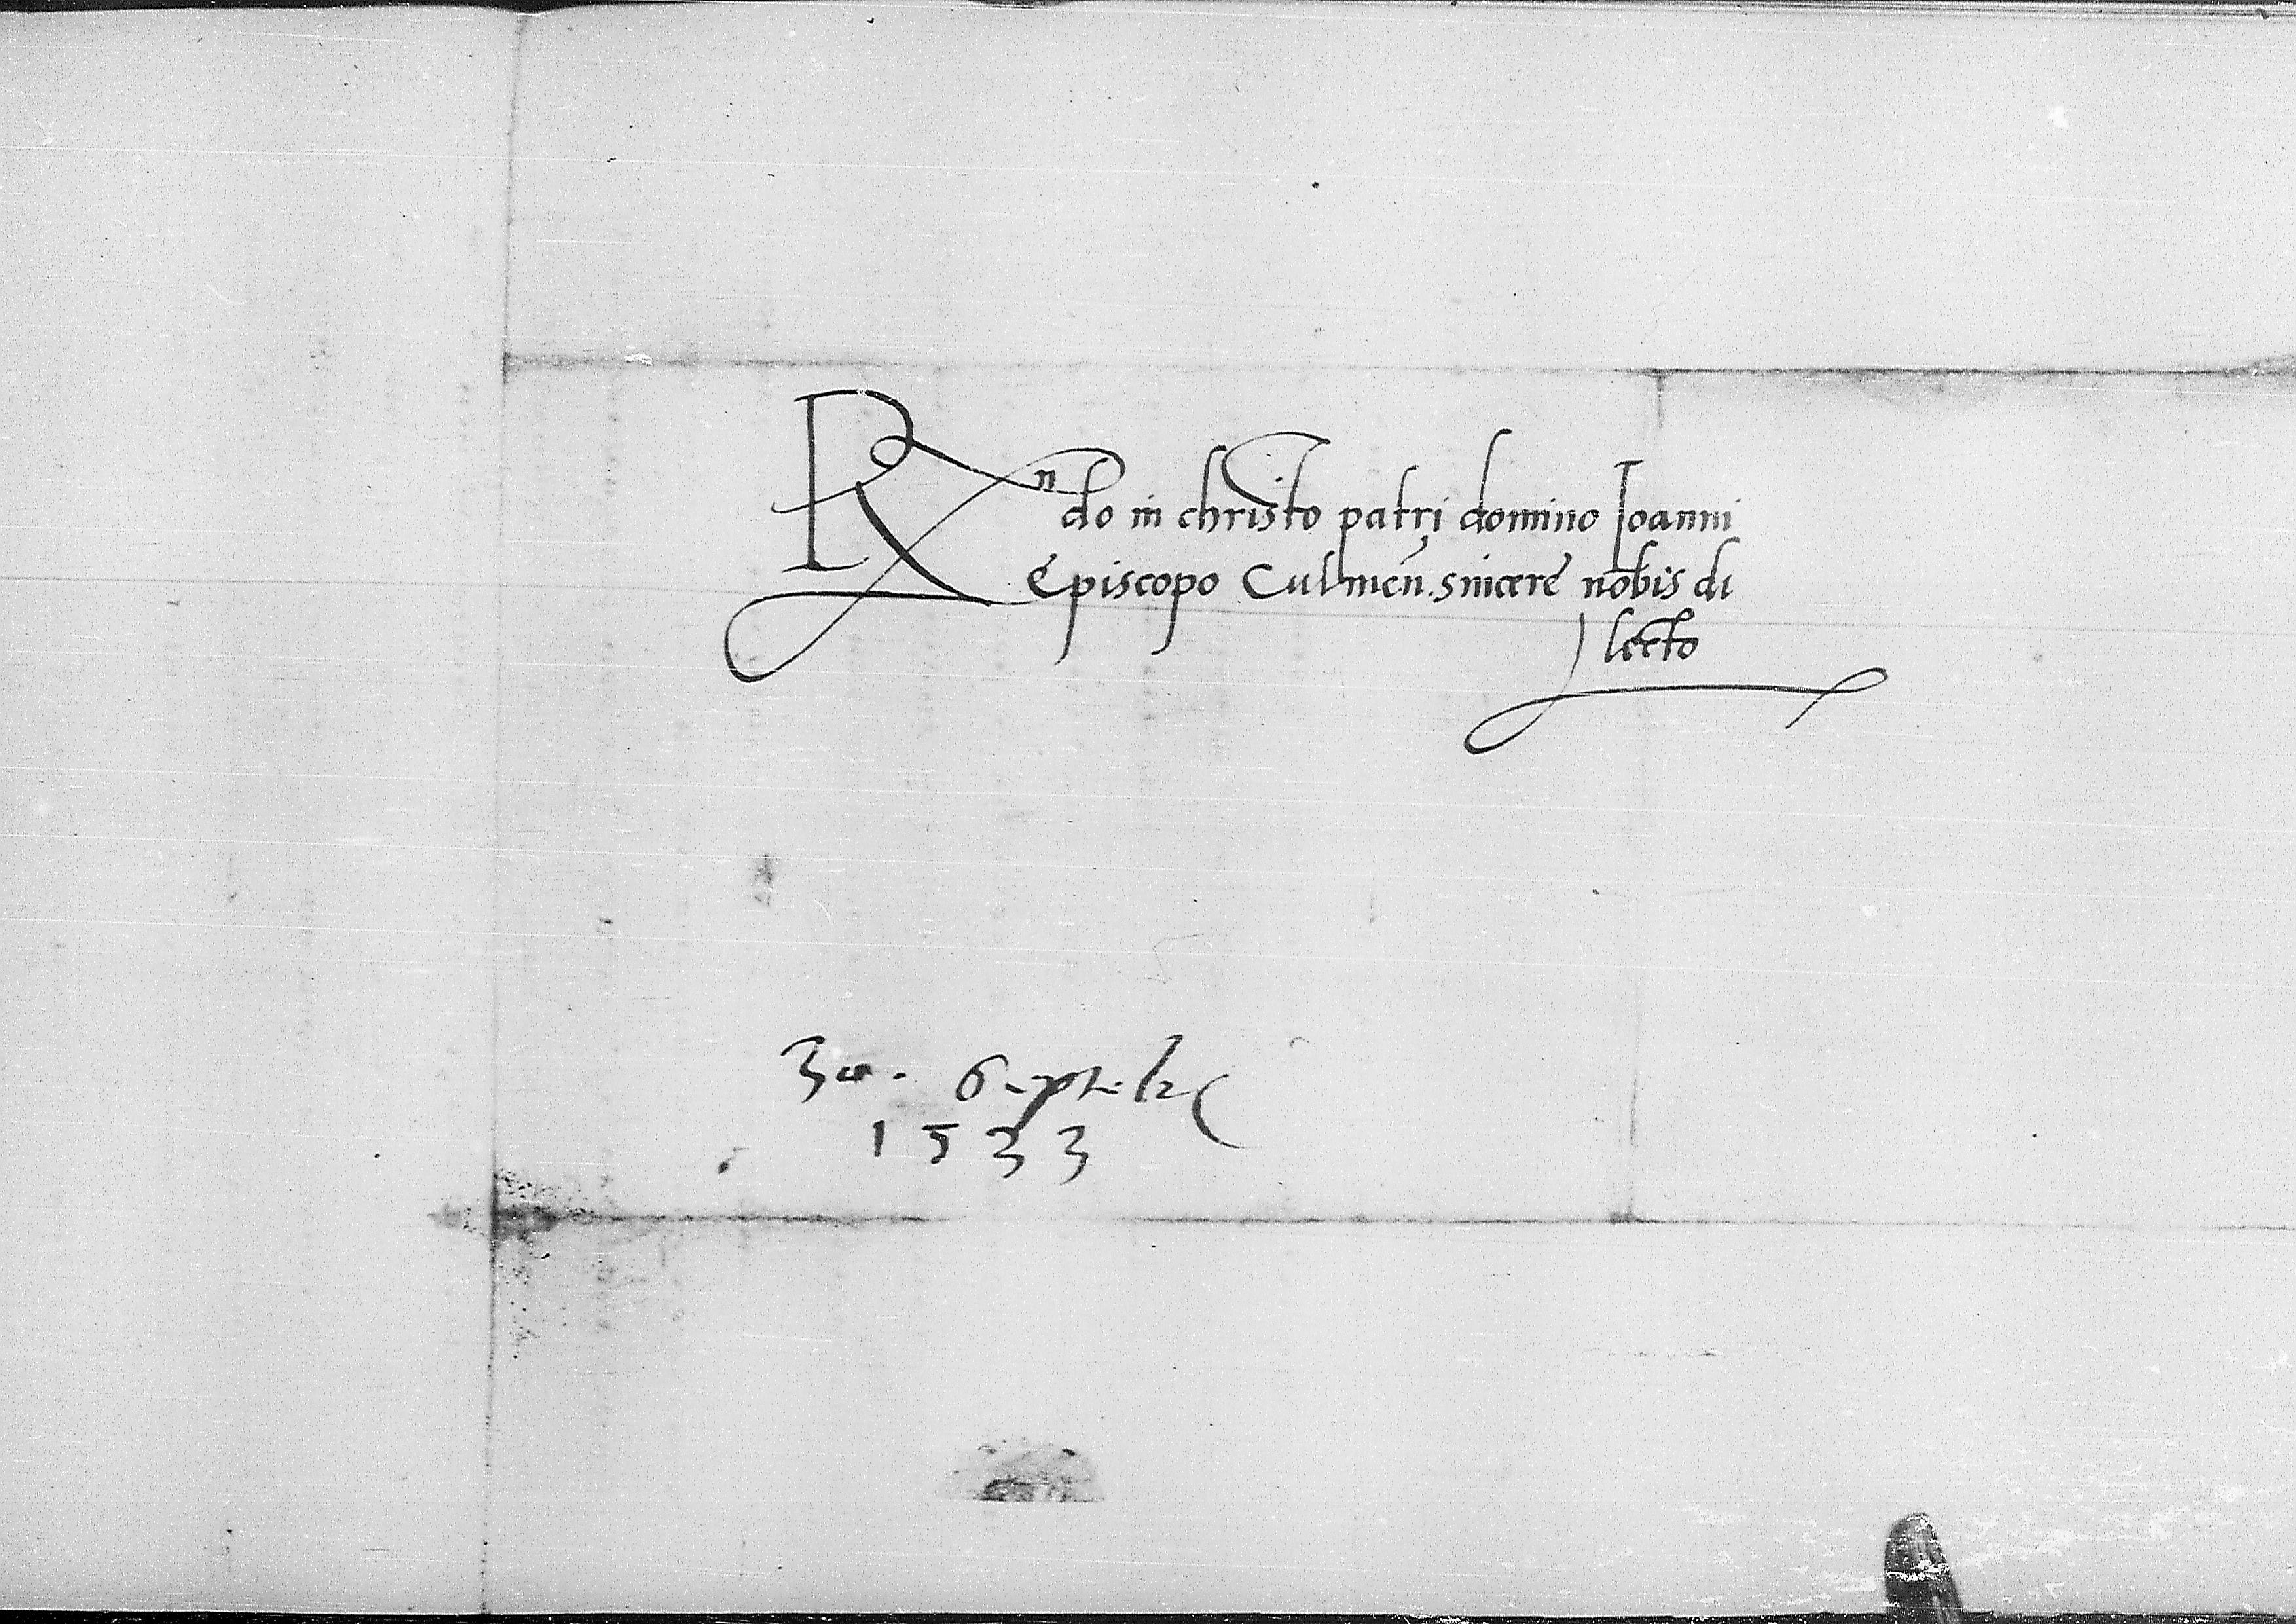 Rndo in christo patri domino Ioanni
Episcopo Culmen̄. sincere nobis di
lecto
30. Septembr
1533